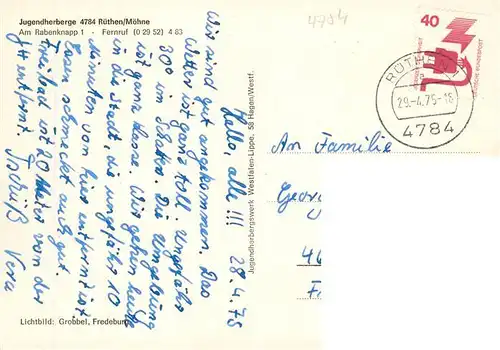 Jugendherberge 4784 Rüthen/Möhne
Am Rabenknapp 1 - Fernruf (0 29 52) 4 83
28.4.75
Hallo, alle !!!
Wir sind gut angekommen. Das
Wetter ist ganz toll. Ungefähr
30° im Schatten. Die Umgebung
ist ganz klasse. Wir gehen heute
in die Stadt, die ungefähr 10
Minuten von hier entfernt ist.
Essen schmeckt auch gut.
Freibad ist 20 Meter von der
JH entfernt. Tschüß Vera
Lichtbild: Grobbel, Fredeburg
Jugendherbergswerk Westfalen-Lippe, 58 Hagen/Westf.
4784
40
DEUTSCHE BUNDESPOST
RÜTH
29.-4.75-18
4784
An Familie
Geor